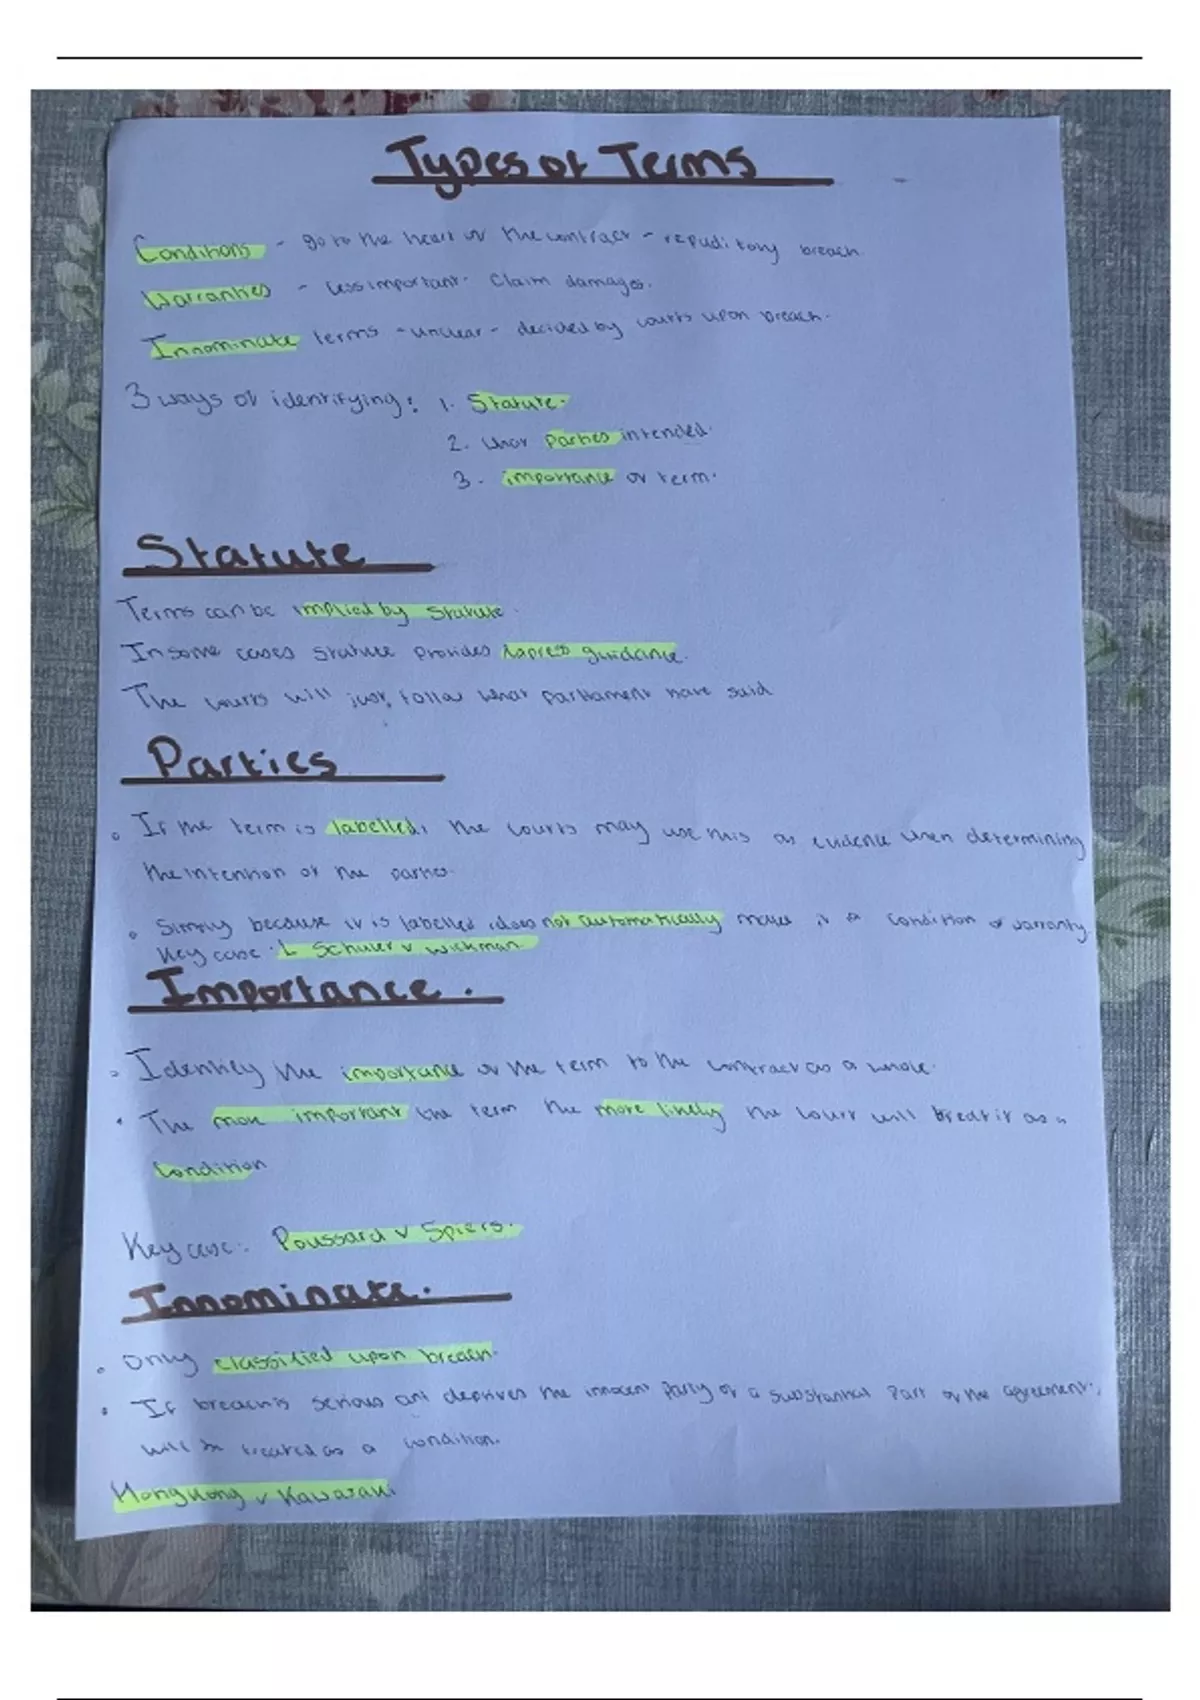 Types of Terms
Conditions - go to the heart of the contract - repuditory breach.
Warranties - less important. Claim damages.
Innominate terms - unclear - decided by courts upon breach.
3 ways of identifying: 1. Statute.
2. what parties intended.
3. importance of term.
Statute
Terms can be implied by statute.
In some cases statute provides express guidance.
The courts will just follow what parliament have said
Parties
If the term is labelled, the courts may use this as evidence when determining
the intention of the parties.
Simply because it is labelled does not automatically make it a condition or warranty.
Key case: L Schuler v Wickman
Importance.
Identify the importance of the term to the contract as a whole.
The more important the term the more likely the court will treat it as a
Condition
Key case: Poussard v Spiers.
Innominate.
Only classified upon breach.
If breach is serious and deprives the innocent party of a substantial part of the agreement,
will be treated as a condition.
Hongkong v Kawasaki